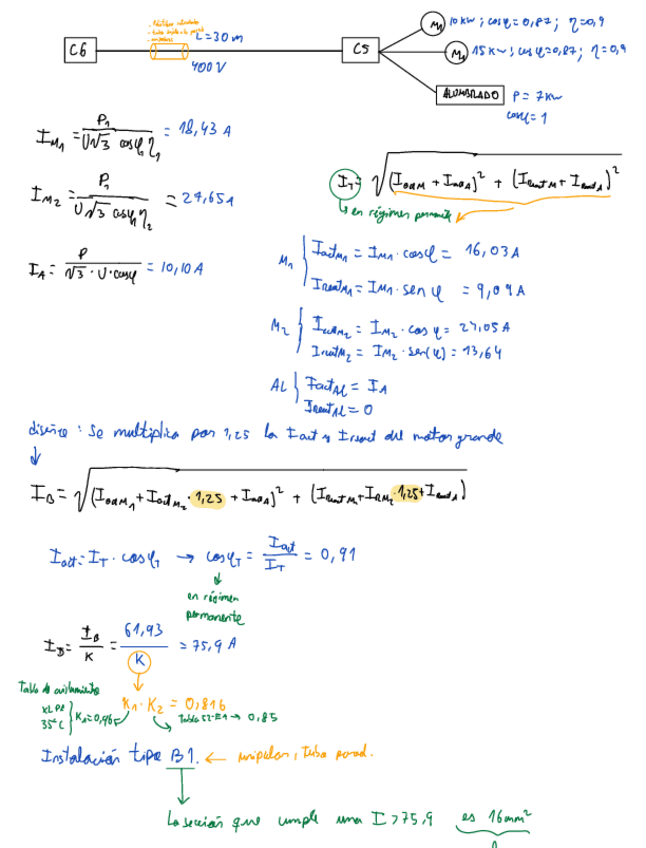 L=30m
C6
C5
400V
M₁ 10kw ; cosφ=0,87 ; η=0,9
M₂ 15kw ; cosφ=0,87 ; η=0,9
ALUMBRADO P=7kw
cosφ=1
I_M₁ = P₁ / (U√3 cosφ₁ η₁) = 18,43 A
I_M₂ = P₁ / (U√3 cosφ₂ η₂) = 27,65A
I_A = P / (√3 · U · cosφ) = 10,10A
I_T = √((I_actM + I_actA)² + (I_reactM + I_reactA)²)
↳ en régimen permanente
M₁ { I_actM₁ = I_M₁ · cosφ = 16,03A
I_reactM₁ = I_M₁ · sen φ = 9,09A
M₂ { I_actM₂ = I_M₂ · cos φ = 24,05A
I_reactM₂ = I_M₂ · sen(φ) = 13,64
AL { I_actAL = I_A
I_reactAL = 0
diseño : Se multiplica por 1,25 la I act y I react del motor grande
I_B = √((I_actM₁ + I_actM₂ · 1,25 + I_actA)² + (I_reactM₁ + I_RM₂ · 1,25 + I_reactA)
I_act = I_T · cosφ_T → cosφ_T = I_act / I_T = 0,91
en régimen
permanente
I_B = I_B / K = 61,93 / K = 75,9 A
Tabla de aislamiento
XLPE
35°C } K₁=0,96
K₁·K₂ = 0,816
Tabla 52-E1 → 0,85
Instalación tipo B1. ← unipolar, tubo pared.
La sección que cumple una I>75,9 es 16mm²